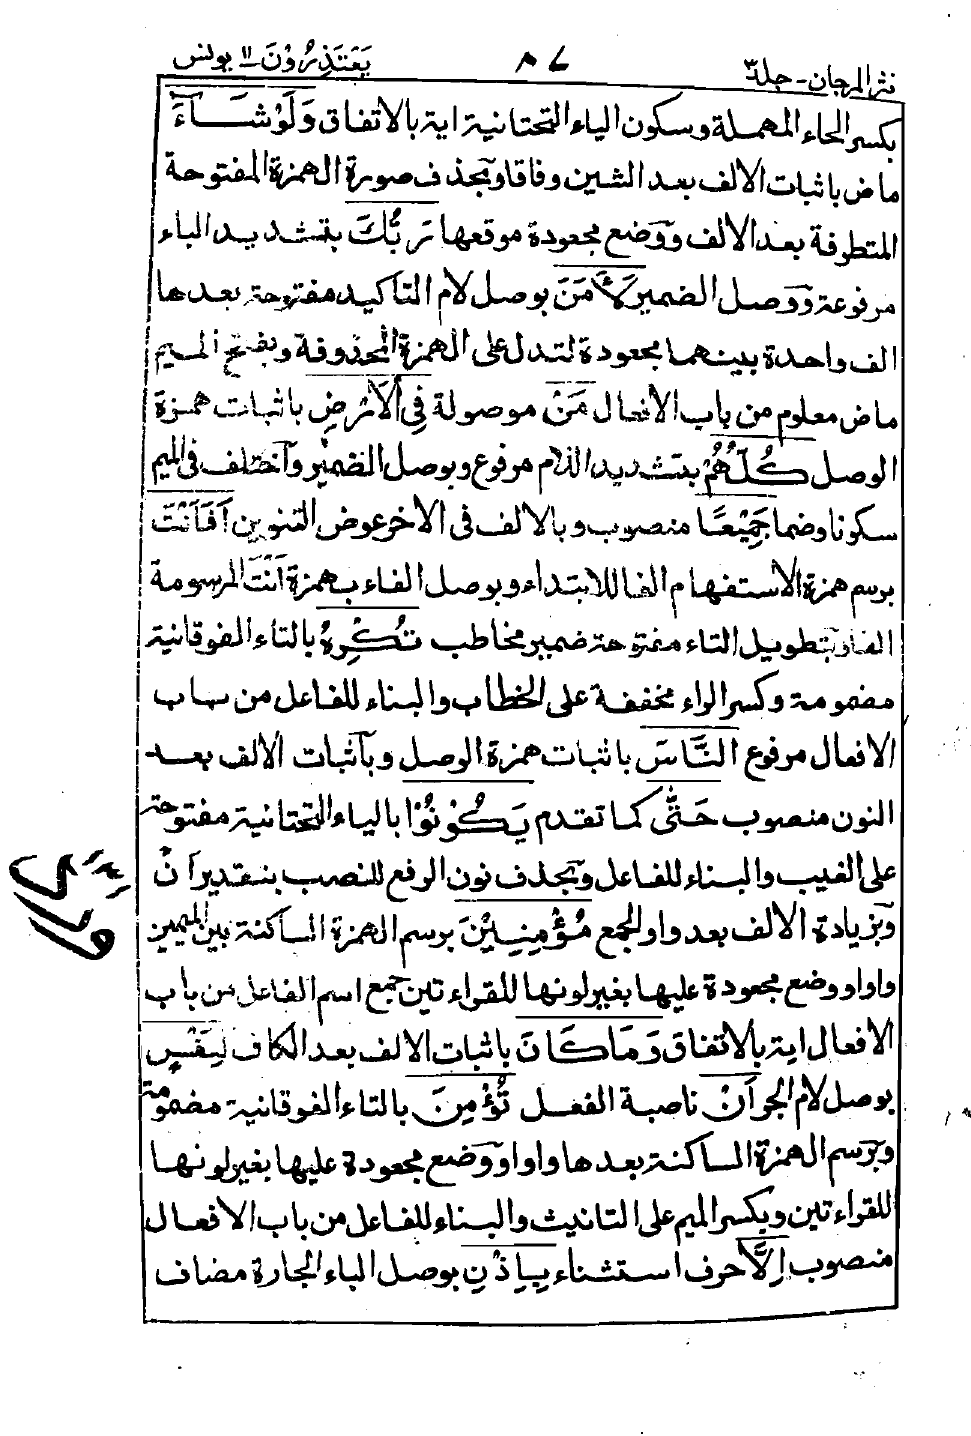 نثر المرجان - جلد ٣
يَعْتَذِرُوْنَ ١١ يونس
بكسر الحاء المهملة وسكون الياء التحتانية اية بالاتفاق وَلَوْ شَآءَ
ماض باثبات الالف بعد الشين وفاقا وبحذف صورة الهمزة المفتوحة
المتطرفة بعد الالف ووضع مجعودة موقعها رَبُّكَ بتشديد الباء
مرفوعة ووصل الضمير لَاٰمَنَ بوصل لام التاكيد مفتوحة بعدها
الف واحدة بينهما مجعودة لتدل على الهمزة المحذوفة وبفتح الميم
ماض معلوم من باب الافعال مَنْ موصولة فِي الْاَرْضِ باثبات همزة
الوصل كُلُّهُمْ بتشديد اللام مرفوع وبوصل الضمير واختلف فى الميم
سكونا وضما جَمِيْعًا منصوب وبالالف فى الاخر عوض التنوين اَفَاَنْتَ
برسم همزة الاستفهام الفا للابتداء وبوصل الفاء بهمزة اَنْتَ المرسومة
الفا وبتطويل التاء مفتوحة ضمير مخاطب تُكْرِهُ بالتاء الفوقانية
مضمومة وكسر الراء مخففة على الخطاب والبناء للفاعل من باب
الافعال مرفوع النَّاسَ باثبات همزة الوصل وباثبات الالف بعد
النون منصوب حَتّٰى كما تقدم يَكُوْنُوْا بالياء التحتانية مفتوحة
على الغيب والبناء للفاعل وبحذف نون الرفع للنصب بتقدير اَنْ
وبزيادة الالف بعد واو الجمع مُؤْمِنِيْنَ برسم الهمزة الساكنة بين الميمين
واوا ووضع مجعودة عليها بغير لونها للقراءتين جمع اسم الفاعل من باب
الافعال اية بالاتفاق وَمَا كَانَ باثبات الالف بعد الكاف لِنَفْسٍ
بوصل لام الجر اَنْ ناصبة الفعل تُؤْمِنَ بالتاء الفوقانية مضمومة
وبرسم الهمزة الساكنة بعدها واوا ووضع مجعودة عليها بغير لونها
للقراءتين وبكسر الميم على التانيث والبناء للفاعل من باب الافعال
منصوب اِلَّا حرف استثناء بِاِذْنِ بوصل الباء الجارة مضاف